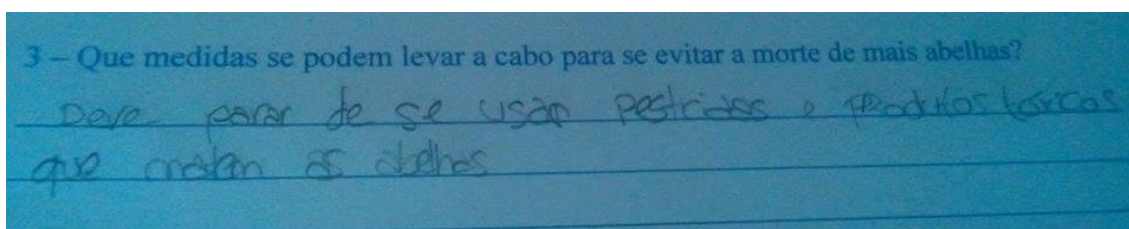 3 – Que medidas se podem levar a cabo para se evitar a morte de mais abelhas?
Deve parar de se usar pesticidas e produtos toxicos
que matan as abelhas